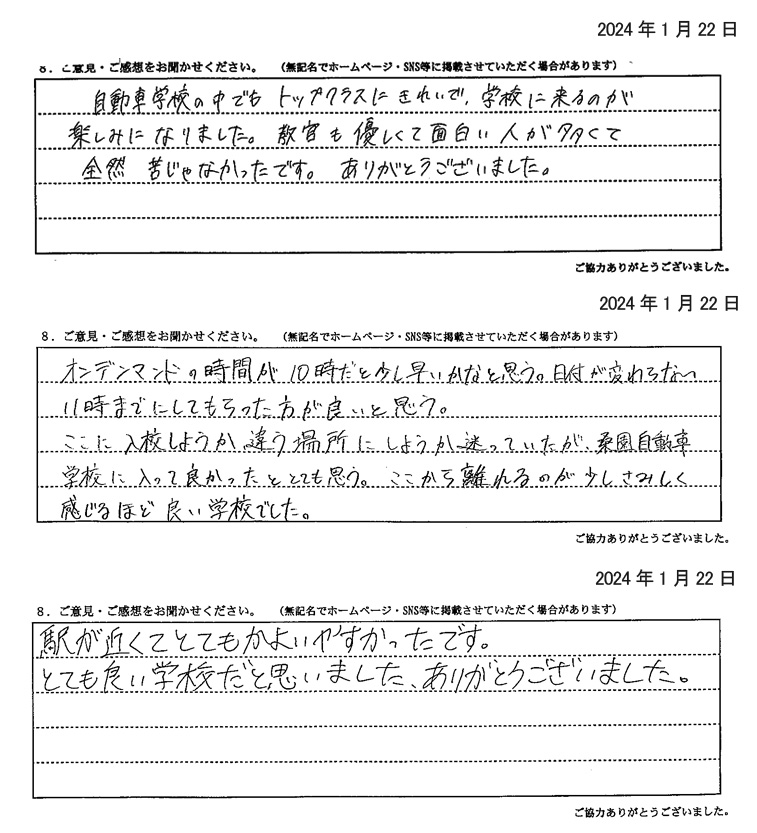 2024年1月22日
8．ご意見・ご感想をお聞かせください。　（無記名でホームページ・SNS等に掲載させていただく場合があります）
自動車学校の中でも トップクラスにきれいで、学校に来るのが
楽しみになりました。教官も優しくて面白い人が多くて
全然 苦じゃなかったです。 ありがとうございました。
ご協力ありがとうございました。
2024年1月22日
8．ご意見・ご感想をお聞かせください。　（無記名でホームページ・SNS等に掲載させていただく場合があります）
オンデンマンドの時間が10時だと少し早いかなと思う。日付が変わらない
11時までにしてもらった方が良いと思う。
ここに入校しようか違う場所にしようか迷っていたが、桑園自動車
学校に入って良かったととても思う。ここから離れるのが少しさみしく
感じるほど良い学校でした。
ご協力ありがとうございました。
2024年1月22日
8．ご意見・ご感想をお聞かせください。　（無記名でホームページ・SNS等に掲載させていただく場合があります）
駅が近くてとてもかよいやすかったです。
とても良い学校だと思いました、ありがとうございました。
ご協力ありがとうございました。